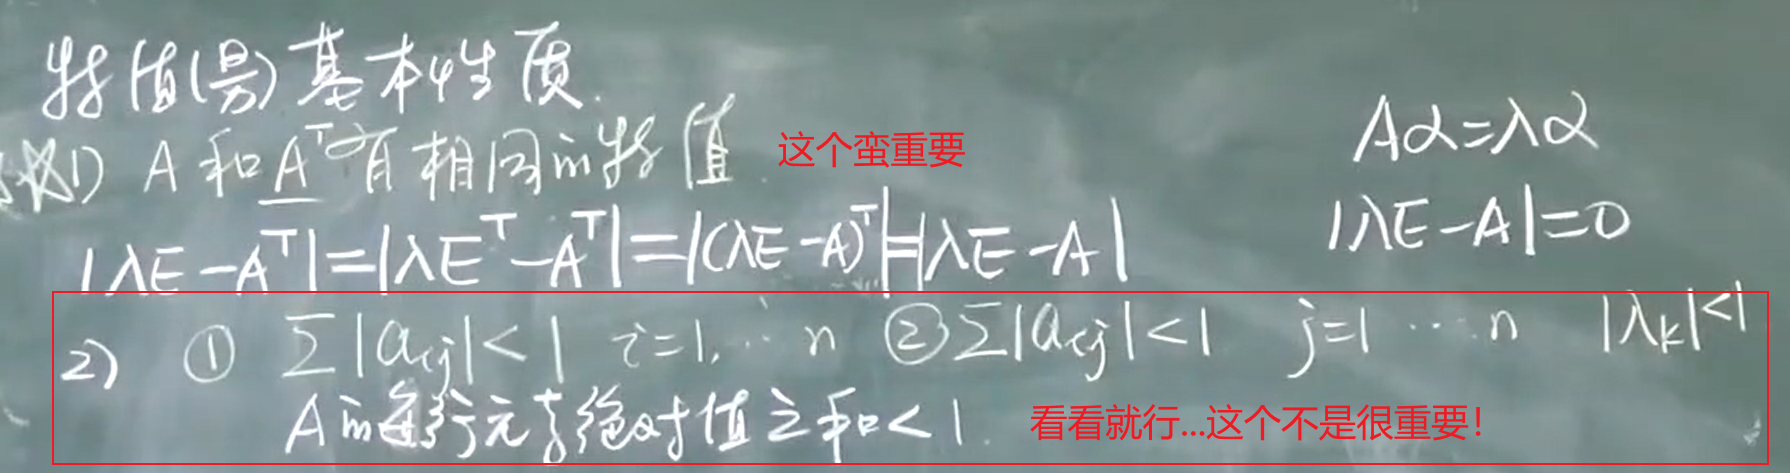 特值(号)基本性质.
1) A和Aᵀ有相同的特值 这个蛮重要
Aα=λα
|λE-Aᵀ|=|λEᵀ-Aᵀ|=|(λE-A)ᵀ|=|λE-A|
|λE-A|=0
2) ① Σ|aij|<1 i=1,…n ②Σ|aij|<1 j=1…n |λk|<1
A的每行元素绝对值之和<1. 看看就行...这个不是很重要!